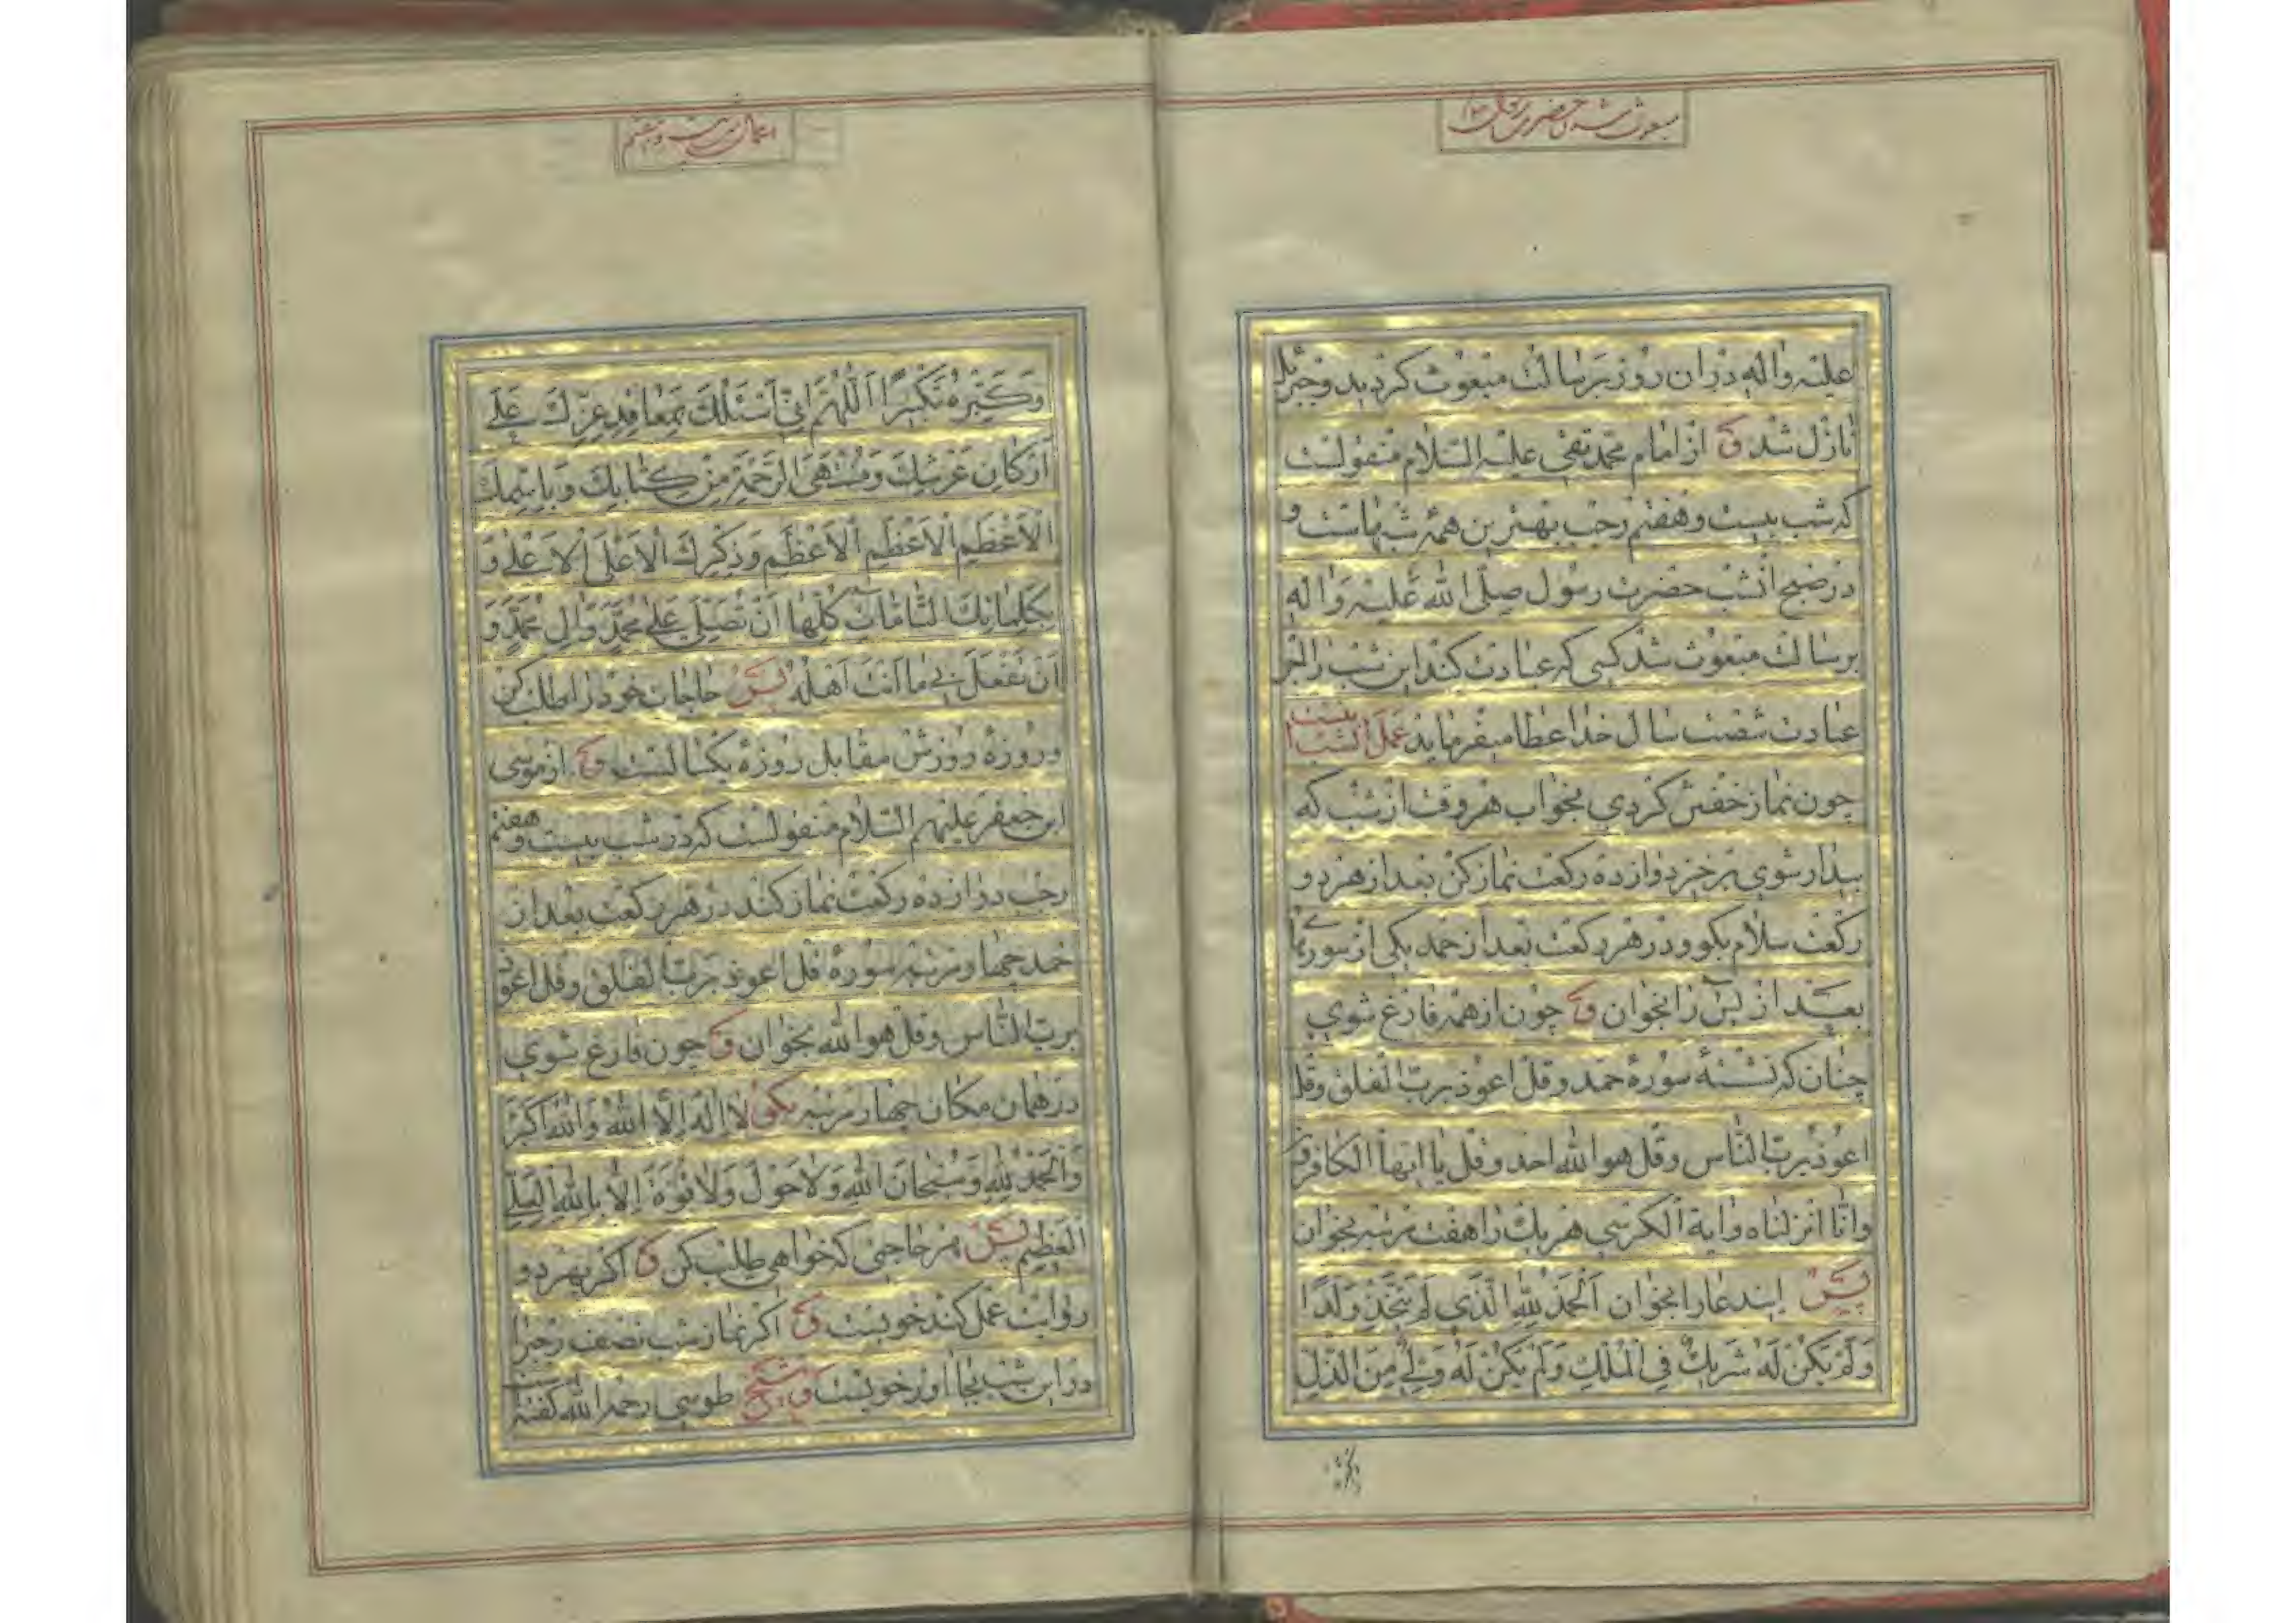 مبعوث شدن حضرت رسول
علیه واله در ان روز برسالت مبعوث کردید و جبرئیل
نازل شد و از امام محمد تقی علیه السلام منقولست
که شب بیست و هفتم رجب بهترین همه شبهاست و
در صبح انشب حضرت رسول صلی الله علیه واله
برسالت مبعوث شد کسی که عبادت کند این شب را اجر
عبادت شصت سال خدا عطا میفرماید عمل انشب اینست
چون نماز خفتن کردی بخواب هر وقت از شب که
بیدار شوی برخیز دوازده رکعت نماز کن بعد از هر دو
رکعت سلام بکو و در هر رکعت بعد از حمد یکی از سورتهای
بعد از یس را بخوان و چون از همه فارغ شوی
چنان که نشستهٔ سورهٔ حمد و قل اعوذ برب الفلق وقل
اعوذ برب الناس وقل هو الله احد وقل یا ایها الکافرون
وانا انزلناه وایة الکرسی هر یک را هفت مرتبه بخوان
پس ایندعا را بخوان اَلْحَمْدُ لِلّٰهِ الَّذی لَمْ یَتَّخِذْ وَلَدًا
وَلَمْ یَکُنْ لَهُ شَریکٌ فِی الْمُلْکِ وَلَمْ یَکُنْ لَهُ وَلِیٌّ مِنَ الذُّلِّ
اعمال شب بیست و هفتم
وَکَبِّرْهُ تَکْبیرًا اَللّٰهُمَّ اِنّی اَسْئَلُکَ بِمَعاقِدِ عِزِّکَ عَلٰی
اَرْکانِ عَرْشِکَ وَمُنْتَهَی الرَّحْمَةِ مِنْ کِتابِکَ وَبِاسْمِکَ
الْاَعْظَمِ الْاَعْظَمِ الْاَعْظَمِ وَذِکْرِکَ الْاَعْلَی الْاَعْلٰی وَ
بِکَلِماتِکَ التّامّاتِ کُلِّها اَنْ تُصَلِّیَ عَلٰی مُحَمَّدٍ وَاٰلِ مُحَمَّدٍ وَ
اَنْ تَفْعَلَ بی ما اَنْتَ اَهْلُهُ پس حاجات خود را طلب کن
و روزهٔ روزش مقابل روزهٔ یکسالست و از موسی
ابن جعفر علیهم السلام منقولست که در شب بیست و هفتم
رجب دوازده رکعت نماز کند در هر رکعت بعد از
حمد چهار مرتبه سورهٔ قل اعوذ برب الفلق وقل اعوذ
برب الناس وقل هو الله بخوان و چون فارغ شوی
در همان مکان چهار مرتبه بکو لا اِلٰهَ اِلَّا اللّٰهُ وَاللّٰهُ اَکْبَرُ
وَالْحَمْدُ لِلّٰهِ وَسُبْحانَ اللّٰهِ وَلا حَوْلَ وَلا قُوَّةَ اِلّا بِاللّٰهِ الْعَلِیِّ
الْعَظیمِ پس هر حاجتی که خواهی طلب کن و اکر بهر دو
روایت عمل کند خوبست و اکر نماز شب نصف رجب را
در این شب بجا اورد خوبست و شیخ طوسی رحمه الله کفته